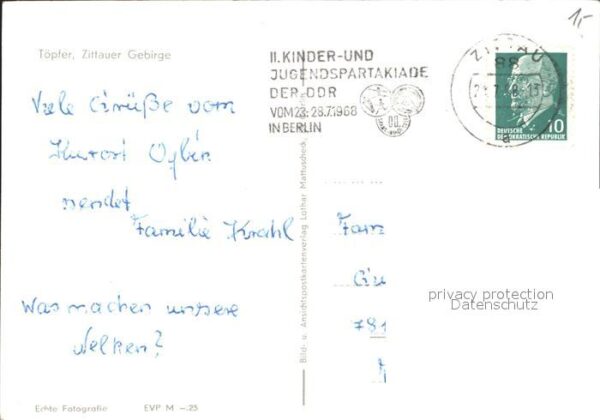 1,-
Töpfer, Zittauer Gebirge
II. KINDER-UND
JUGENDSPARTAKIADE
DER DDR
VOM 23.-28.7.1968
IN BERLIN
ZITTAU
88
DEUTSCHE
DEMOKRATISCHE REPUBLIK
10
a
Viele Grüße vom
Kurort Oybin
sendet
Familie Krahl
Was machen unsere
Nelken?
Fam
Gu
781
privacy protection
Datenschutz
Bild- u. Ansichtspostkartenverlag Lothar Mattuscheck,
Echte Fotografie EVP M -.25